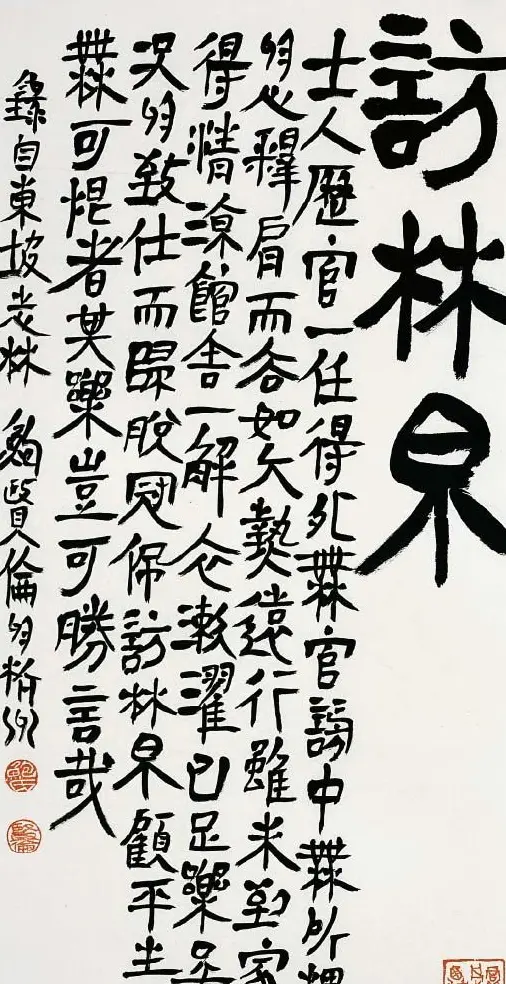 訪林泉
士人歷官一任得外無官謗中無所愧
於心釋肩而去如大熱遠行雖未到家
得清涼館舍一解衣漱濯已足樂矣
况於致仕而歸脫冠佩訪林泉顧平生
無可恨者其樂豈可勝言哉
錄自東坡志林 鮑賢倫於杭州